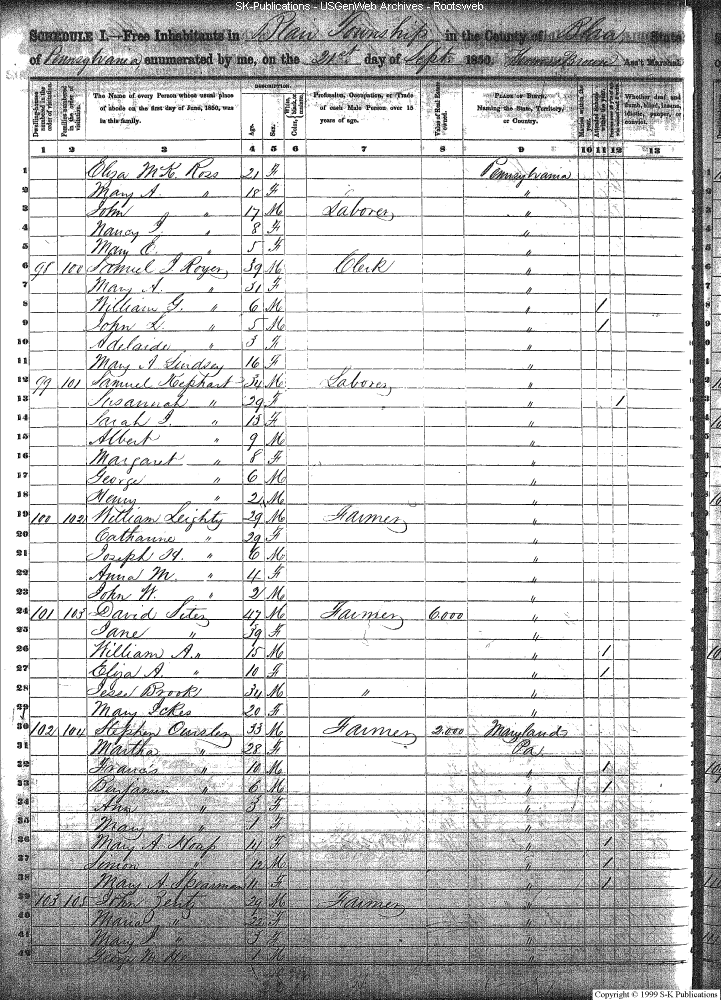 SK-Publications - USGenWeb Archives - Rootsweb
SCHEDULE I.—Free Inhabitants in Blair Township in the County of Blair State
of Pennsylvania enumerated by me, on the 21st day of Sept. 1850. Ass't Marshal.
DESCRIPTION.
Dwelling-houses numbered in the order of visitation. Families numbered in the order of visitation. The Name of every Person whose usual place of abode on the first day of June, 1850, was in this family. Age. Sex. Color, White, black, or mulatto. Profession, Occupation, or Trade of each Male Person over 15 years of age. Value of Real Estate owned. PLACE OF BIRTH, Naming the State, Territory, or Country. Married within the year. Whether deaf and dumb, blind, insane, idiotic, pauper, or convict.
1 2 3 4 5 6 7 8 9 10 11 12 13
1 Eliza McK. Ross 21 F Pennsylvania
2 Mary A. " 18 F "
3 John " 17 M Laborer "
4 Nancy J. " 8 F "
5 Mary E. " 5 F "
6 98 100 Samuel J Royer 39 M Clerk "
7 Mary A. " 31 F "
8 William G. " 6 M " /
9 John L. " 5 M " /
10 Adelaide " 3 F "
11 Mary A Lindsey 16 F "
12 99 101 Samuel Kephart 34 M Laborer "
13 Susannah " 29 F " /
14 Sarah J. " 13 F "
15 Albert " 9 M "
16 Margaret " 8 F "
17 George " 6 M "
18 Henry " 2 M "
19 100 102 William Leighty 29 M Farmer "
20 Catharine " 29 F "
21 Joseph H. " 6 M "
22 Anna M. " 4 F "
23 John W. " 2 M "
24 101 103 David Sites 47 M Farmer 6.000 "
25 Jane " 39 F "
26 William A. " 15 M " /
27 Eliza A. " 10 F " /
28 Jesse Brook 34 M " "
29 Mary Ickes 20 F "
30 102 104 Stephen 33 M Farmer 2.000 Maryland
31 Martha " 28 F Pa
32 Francis " 10 M " /
33 Benjamin " 6 M " /
34 Ann " 3 F "
35 Mary " 1 F "
36 Mary A. 11 F " /
37 Simon " 12 M " /
38 Mary A. Spearman 11 F " /
39 103 105 John 29 M Farmer "
40 Maria " 22 F "
41 Mary J. " 3 F "
42 George W. 1 M "
Copyright © 1999 S-K Publications